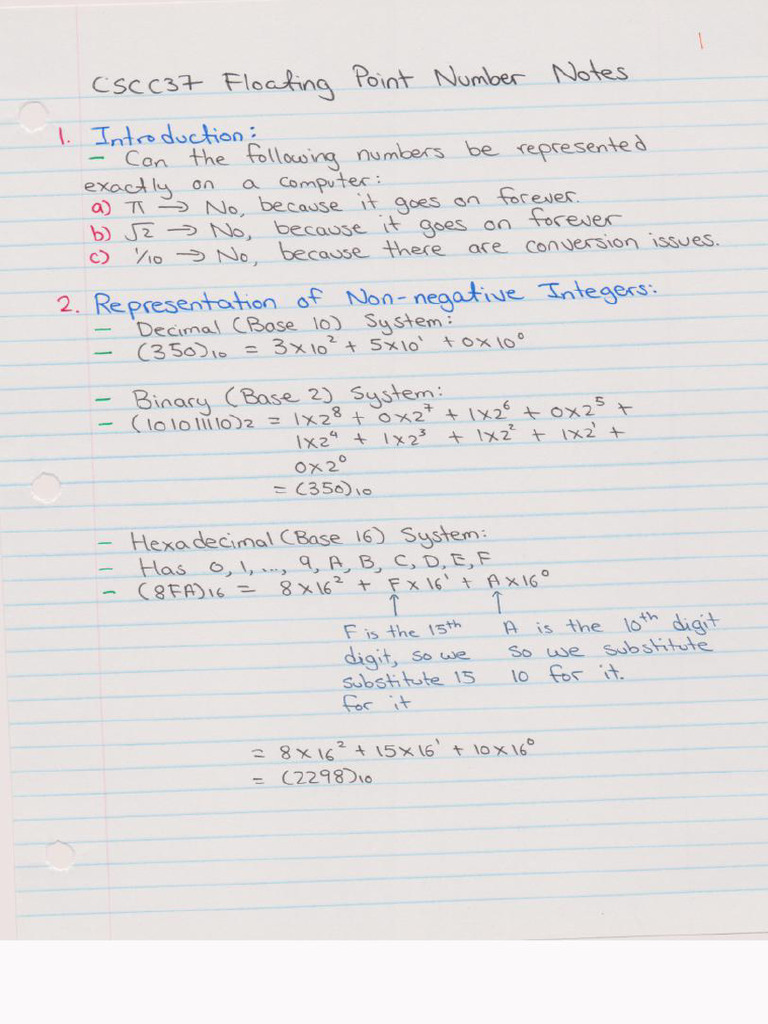 1
CSCC37 Floating Point Number Notes
1. Introduction:
- Can the following numbers be represented
exactly on a computer:
a) π → No, because it goes on forever.
b) √2 → No, because it goes on forever
c) 1/10 → No, because there are conversion issues.
2. Representation of Non-negative Integers:
- Decimal (Base 10) System:
- (350)₁₀ = 3×10² + 5×10¹ + 0×10⁰
- Binary (Base 2) System:
- (101011110)₂ = 1×2⁸ + 0×2⁷ + 1×2⁶ + 0×2⁵ +
1×2⁴ + 1×2³ + 1×2² + 1×2¹ +
0×2⁰
= (350)₁₀
- Hexadecimal (Base 16) System:
- Has 0, 1, ..., 9, A, B, C, D, E, F
- (8FA)₁₆ = 8×16² + F×16¹ + A×16⁰
↑ ↑
F is the 15th
digit, so we
substitute 15
for it
A is the 10th digit
so we substitute
10 for it.
= 8×16² + 15×16¹ + 10×16⁰
= (2298)₁₀